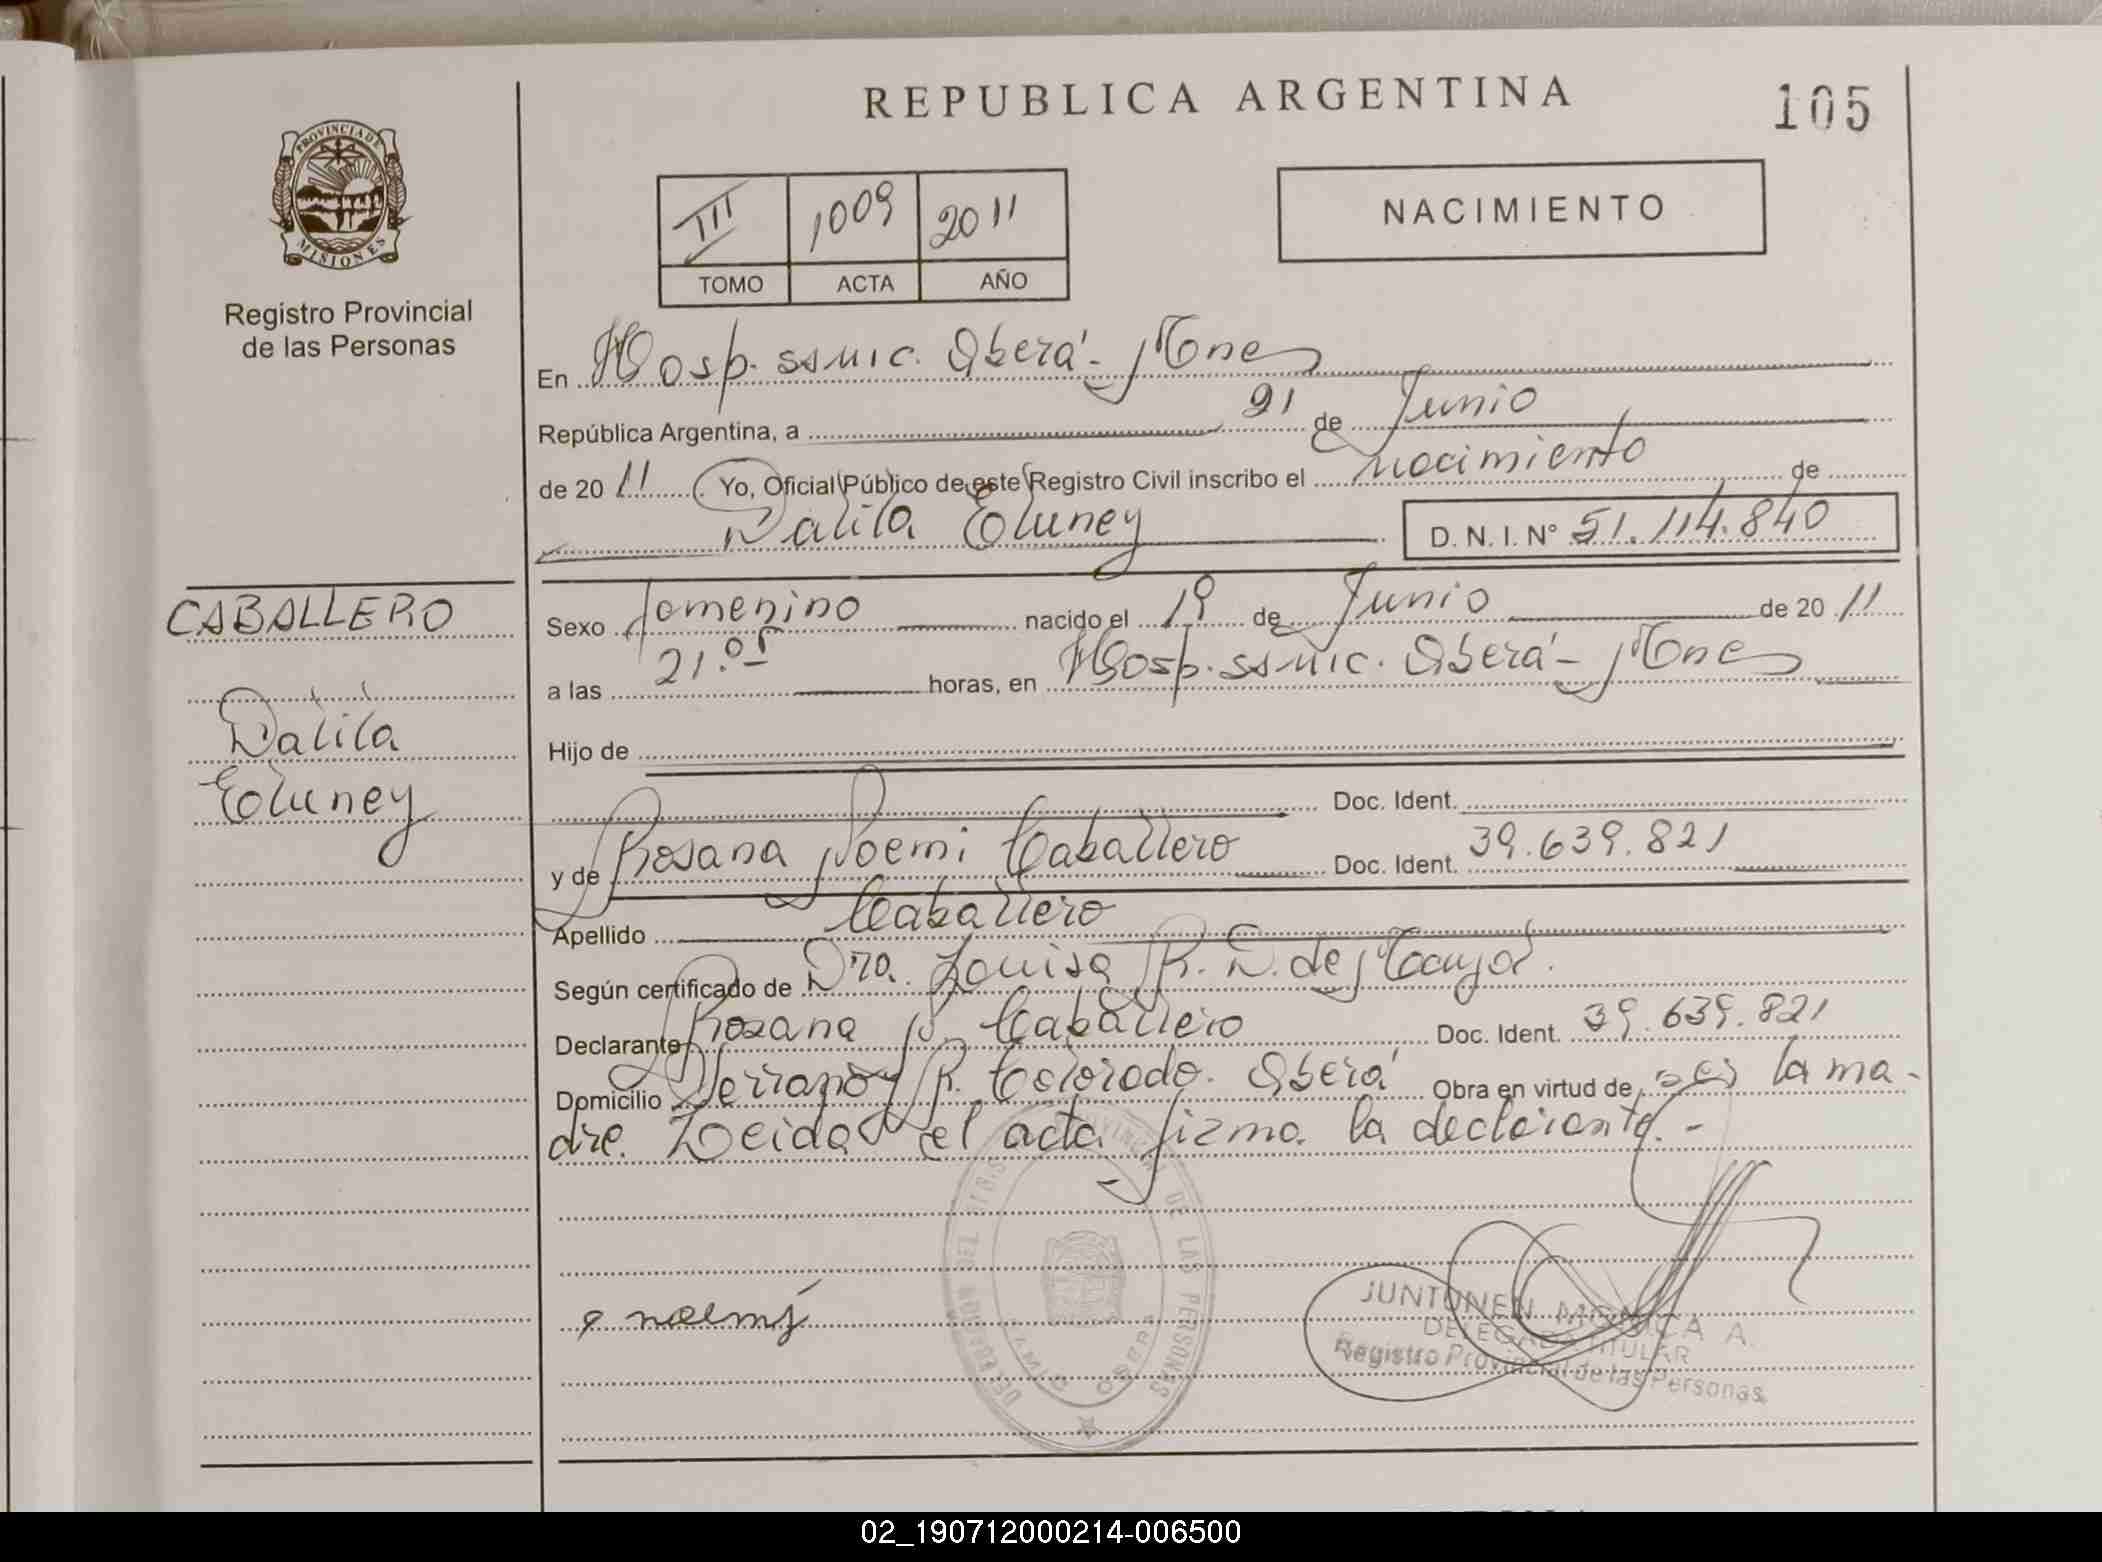 REPUBLICA ARGENTINA
105
PROVINCIA DE MISIONES
Registro Provincial
de las Personas
III 1009 2011
TOMO ACTA AÑO
NACIMIENTO
En Hosp. SSMIC. Oberá - Mnes
República Argentina, a 21 de Junio
de 20 11 Yo, Oficial Público de este Registro Civil inscribo el nacimiento de
Dalila Eluney
D. N. I. N° 51.114.840
CABALLERO
Dalila
Eluney
Sexo femenino nacido el 19 de Junio de 20 11
a las 21.05 horas, en Hosp. SSMIC. Oberá - Mnes
Hijo de
Doc. Ident.
y de Rosana Noemi Caballero Doc. Ident. 39.639.821
Apellido Caballero
Según certificado de Dra. Louisa R. D. de
Declarante Rosana N. Caballero Doc. Ident. 39.639.821
Domicilio Serrano y R. Colorado. Oberá Obra en virtud de ser la ma-
dre. Leida el acta firma la declarante.-
DELEGACION DEL REGISTRO PROVINCIAL DE LAS PERSONAS
OBERA
noemi
JUNTONEN MONICA A.
DELEGADA TITULAR
Registro Provincial de las Personas
02_190712000214-006500